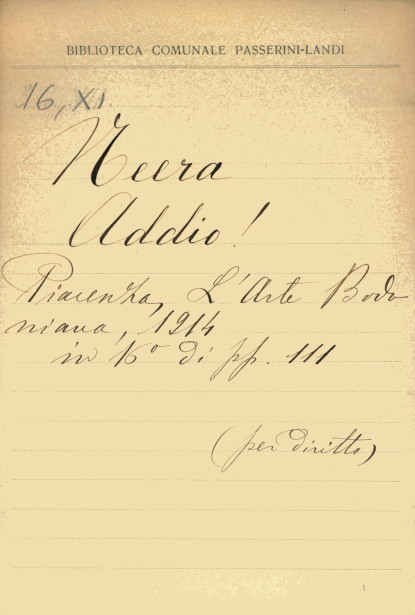 BIBLIOTECA COMUNALE PASSERINI-LANDI
16, XI.
Neera
Addio!
Piacenza, L'Arte Bodo
niana, 1914
in 16° di pp. 111
(per diritto)